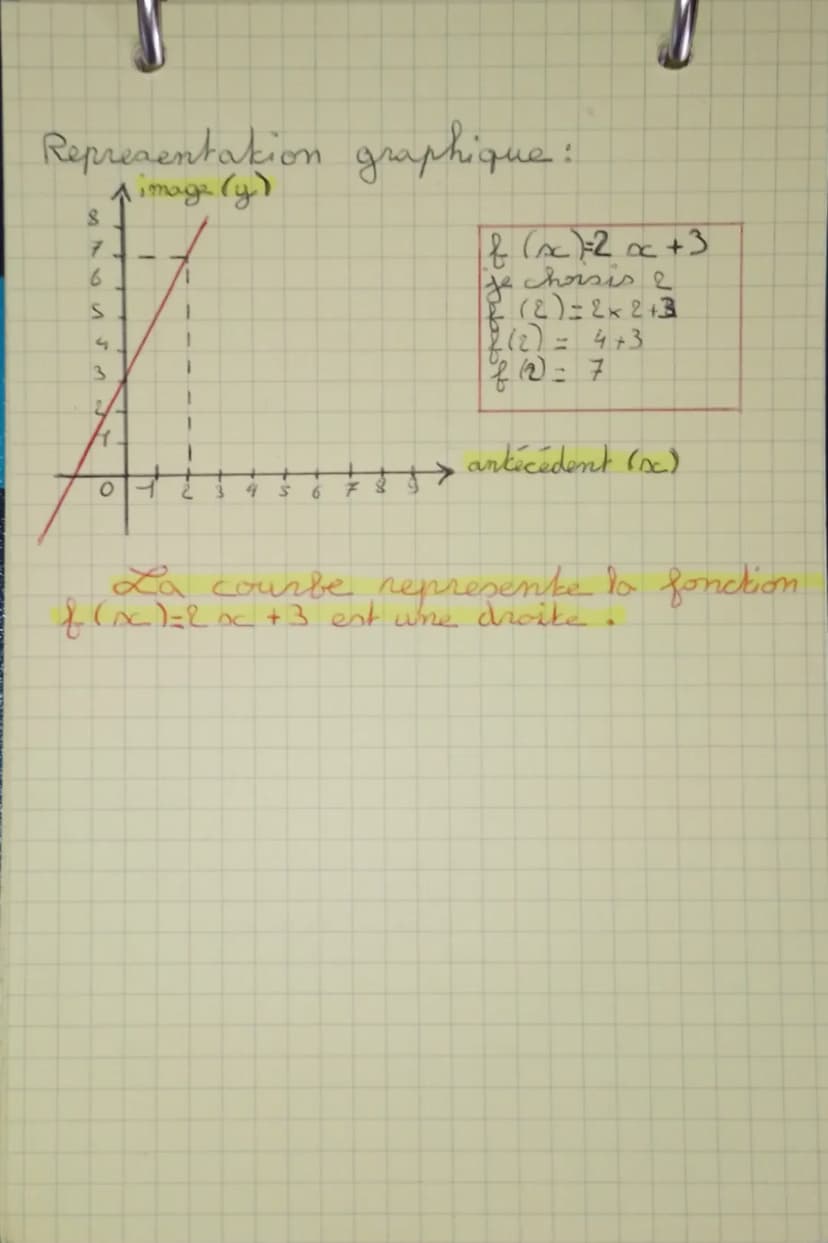 Representation graphique :
image (y)
8
7
6
5
4
3
2
1
0 1 2 3 4 5 6 7 8 9
antécédent (x)
f (x)=2 x +3
je choisis 2
f (2) = 2 x 2 +3
f(2) = 4 +3
f (2) = 7
La courbe represente la fonction
f (x)=2 x + 3 est une droite .